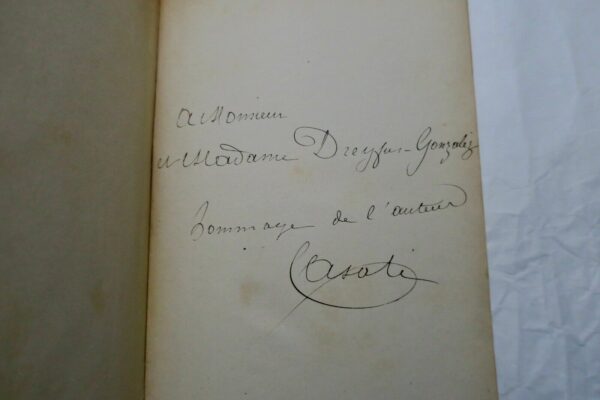 A Monsieur
et Madame Dreyfus-Gonzalez
hommage de l'auteur
Casati